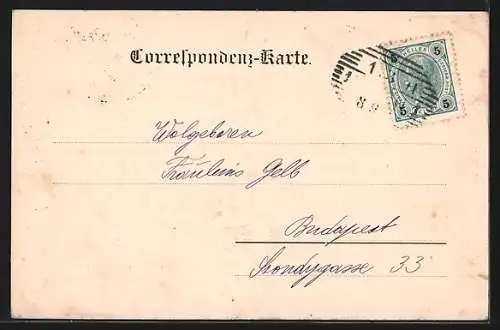 Correspondenz-Karte.
5 5
5 5
Wolgeboren
Fräuleins Gelb
Budapest
Szondygasse 33